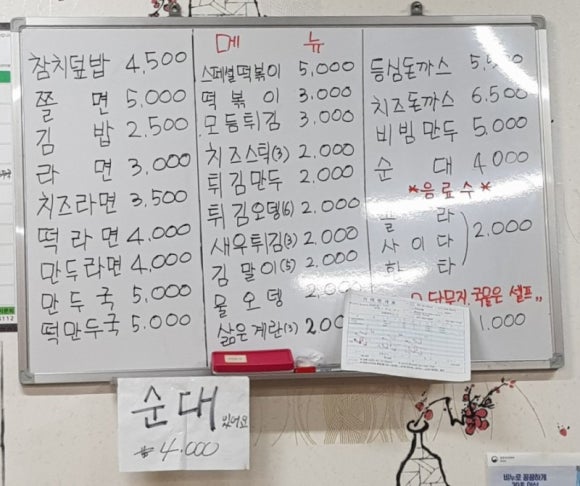 메 뉴
참치덮밥 4,500
쫄 면 5,000
김 밥 2,500
라 면 3,000
치즈라면 3,500
떡 라 면 4,000
만두라면 4,000
만 두 국 5,000
떡만두국 5,000
스페셜떡볶이 5,000
떡 볶 이 3,000
모듬튀김 3,000
치즈스틱(3) 2,000
튀김만두 2,000
튀김오뎅(6) 2,000
새우튀김(3) 2,000
김 말 이(5) 2,000
물 오 뎅
삶은계란(3)
등심돈까스
치즈돈까스 6,500
비빔만두 5,000
순 대 4000
*음료수*
콜 라
사 이 다 2,000
환 타
단무지, 국물은 셀프,,
1,000
순대 있어요
₩4,000